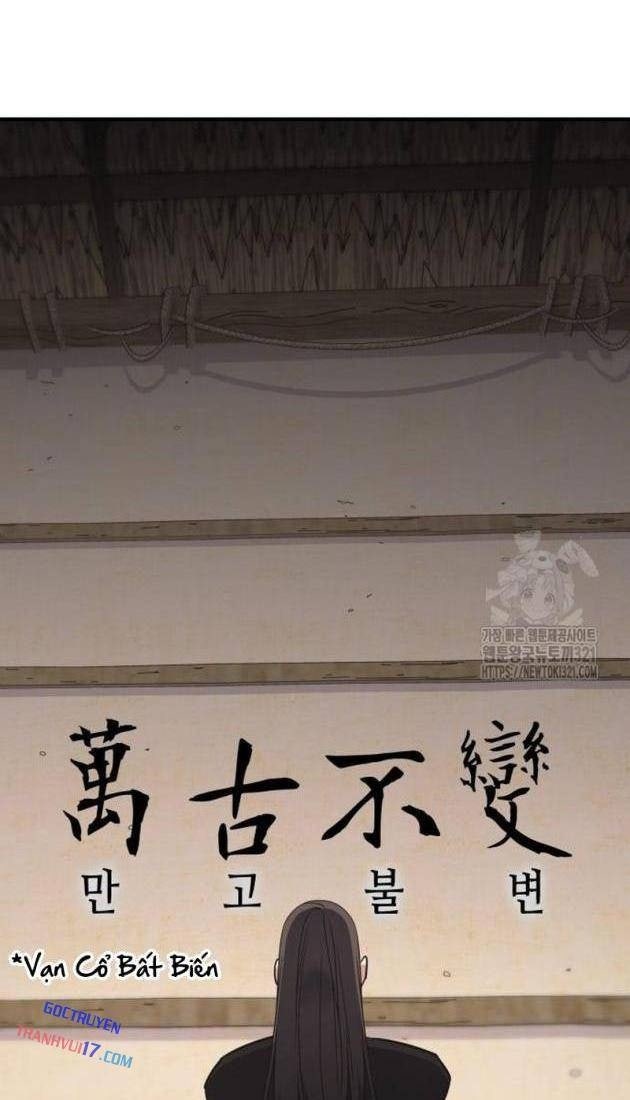 가장 빠른 웹툰제공사이트
웹툰왕국뉴토끼321
HTTPS://NEWTOKI321.COM
萬古不變
만고불변
*Vạn Cổ Bất Biến
GOCTRUYEN
TRANHVUI17.COM